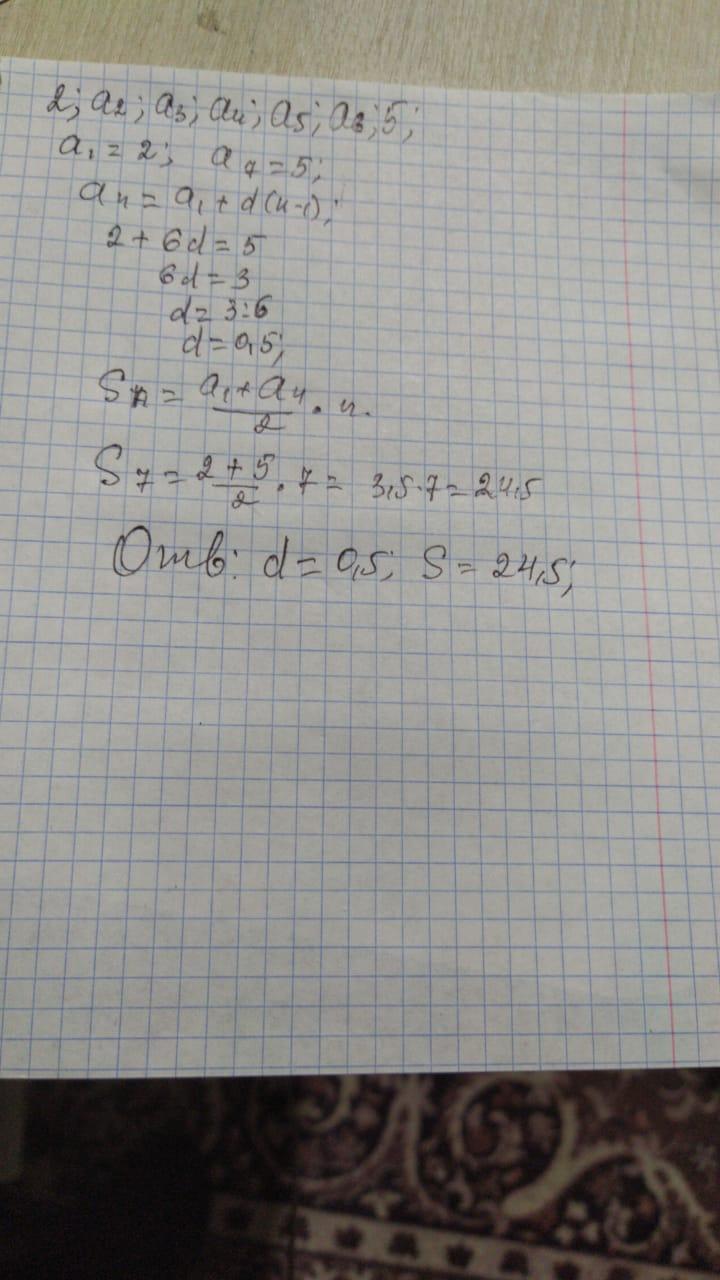 2; a₂; a₃; a₄; a₅; a₆; 5;
a₁ = 2; a₇ = 5;
aₙ = a₁ + d(n-1);
2 + 6d = 5
6d = 3
d = 3:6
d = 0,5;
Sₙ = (a₁ + aₙ)/2 · n.
S₇ = (2 + 5)/2 · 7 = 3,5·7 = 24,5
Отв: d = 0,5; S = 24,5;